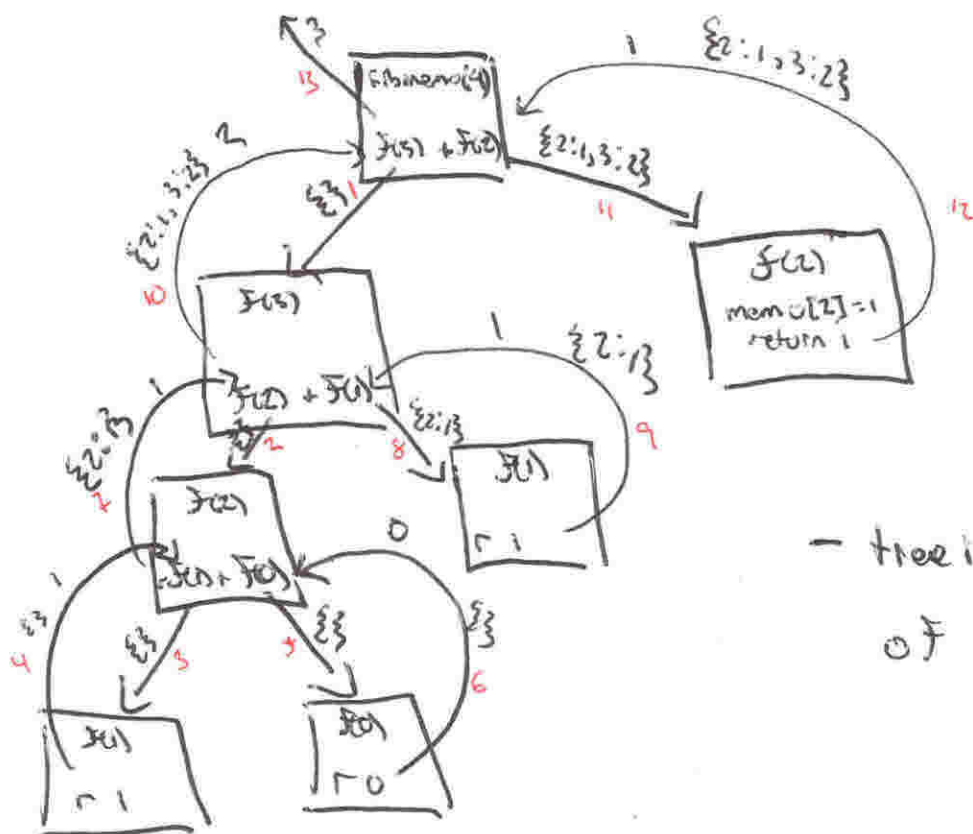 3
13
fibmemo(4)
f(3) + f(2)
1
{2:1, 3:2}
12
{2:1, 3:2}
11
f(2)
memo[2]=1
return 1
{2:1, 3:2} 2
10
{} 1
f(3)
f(2) + f(1)
1
{2:1}
9
1
{2:1}
7
{} 2
{2:1}
8
f(1)
r 1
f(2)
f(1) + f(0)
1
{}
4
{}
3
{}
5
0
{}
6
f(1)
r 1
f(0)
r 0
- tree i
of